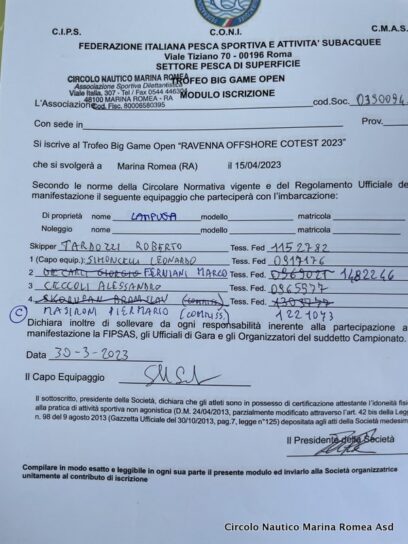 C.I.P.S. C.O.N.I. C.M.A.S.
FEDERAZIONE ITALIANA PESCA SPORTIVA E ATTIVITA' SUBACQUEE
Viale Tiziano 70 - 00196 Roma
SETTORE PESCA DI SUPERFICIE
CIRCOLO NAUTICO MARINA ROMEA
TROFEO BIG GAME OPEN
Associazione Sportiva Dilettantistica
Viale Italia, 307 - Tel / Fax 0544
48100 MARINA ROMEA - RA
MODULO ISCRIZIONE
Cod. Fisc. 80006580395
L'Associazione cod.Soc. 0390094
Con sede in Prov.
Si iscrive al Trofeo Big Game Open "RAVENNA OFFSHORE COTEST 2023"
che si svolgerà a Marina Romea (RA) il 15/04/2023
Secondo le norme della Circolare Normativa vigente e del Regolamento Ufficiale de
manifestazione il seguente equipaggio che parteciperà con l'imbarcazione:
Di proprietà nome LAMPUGA modello matricola
Noleggio nome modello matricola
Skipper TARDOZZI ROBERTO Tess. Fed 1152782
1 (Capo equip.) SIMONCELLI LEONARDO Tess. Fed. 0917176
2 DE CARLI GIORGIO FERVIANI MARCO Tess. Fed. 1482246
3 CECCOLI ALESSANDRO Tess. Fed. 0965977
4 (COMMISS.) Tess. Fed.
C MASIRONI PIERMARIO (COMMISS.) 1221073
Dichiara inoltre di sollevare da ogni responsabilità inerente alla partecipazione a
manifestazione la FIPSAS, gli Ufficiali di Gara e gli Organizzatori del suddetto Campionato.
Data 30-3-2023
Il Capo Equipaggio
Il sottoscritto, presidente della Società, dichiara che gli atleti sono in possesso di certificazione attestante l'idoneità fisi
alla pratica di attività sportiva non agonistica (D.M. 24/04/2013, parzialmente modificato attraverso l'art. 42 bis della Leg
n. 98 del 9 agosto 2013 (Gazzetta Ufficiale del 30/10/2013, pag.7, legge n°125) depositata agli atti della Società medesim
Il Presidente della Società
Compilare in modo esatto e leggibile in ogni sua parte il presente modulo ed inviarlo alla Società organizzatrice
unitamente al contributo di iscrizione
Circolo Nautico Marina Romea Asd